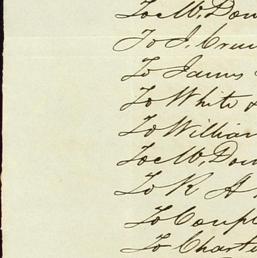 To M. Dow
To J. Crui
To James
To White &
To William
To M. Dow
To R A
To Coupl
To Charte